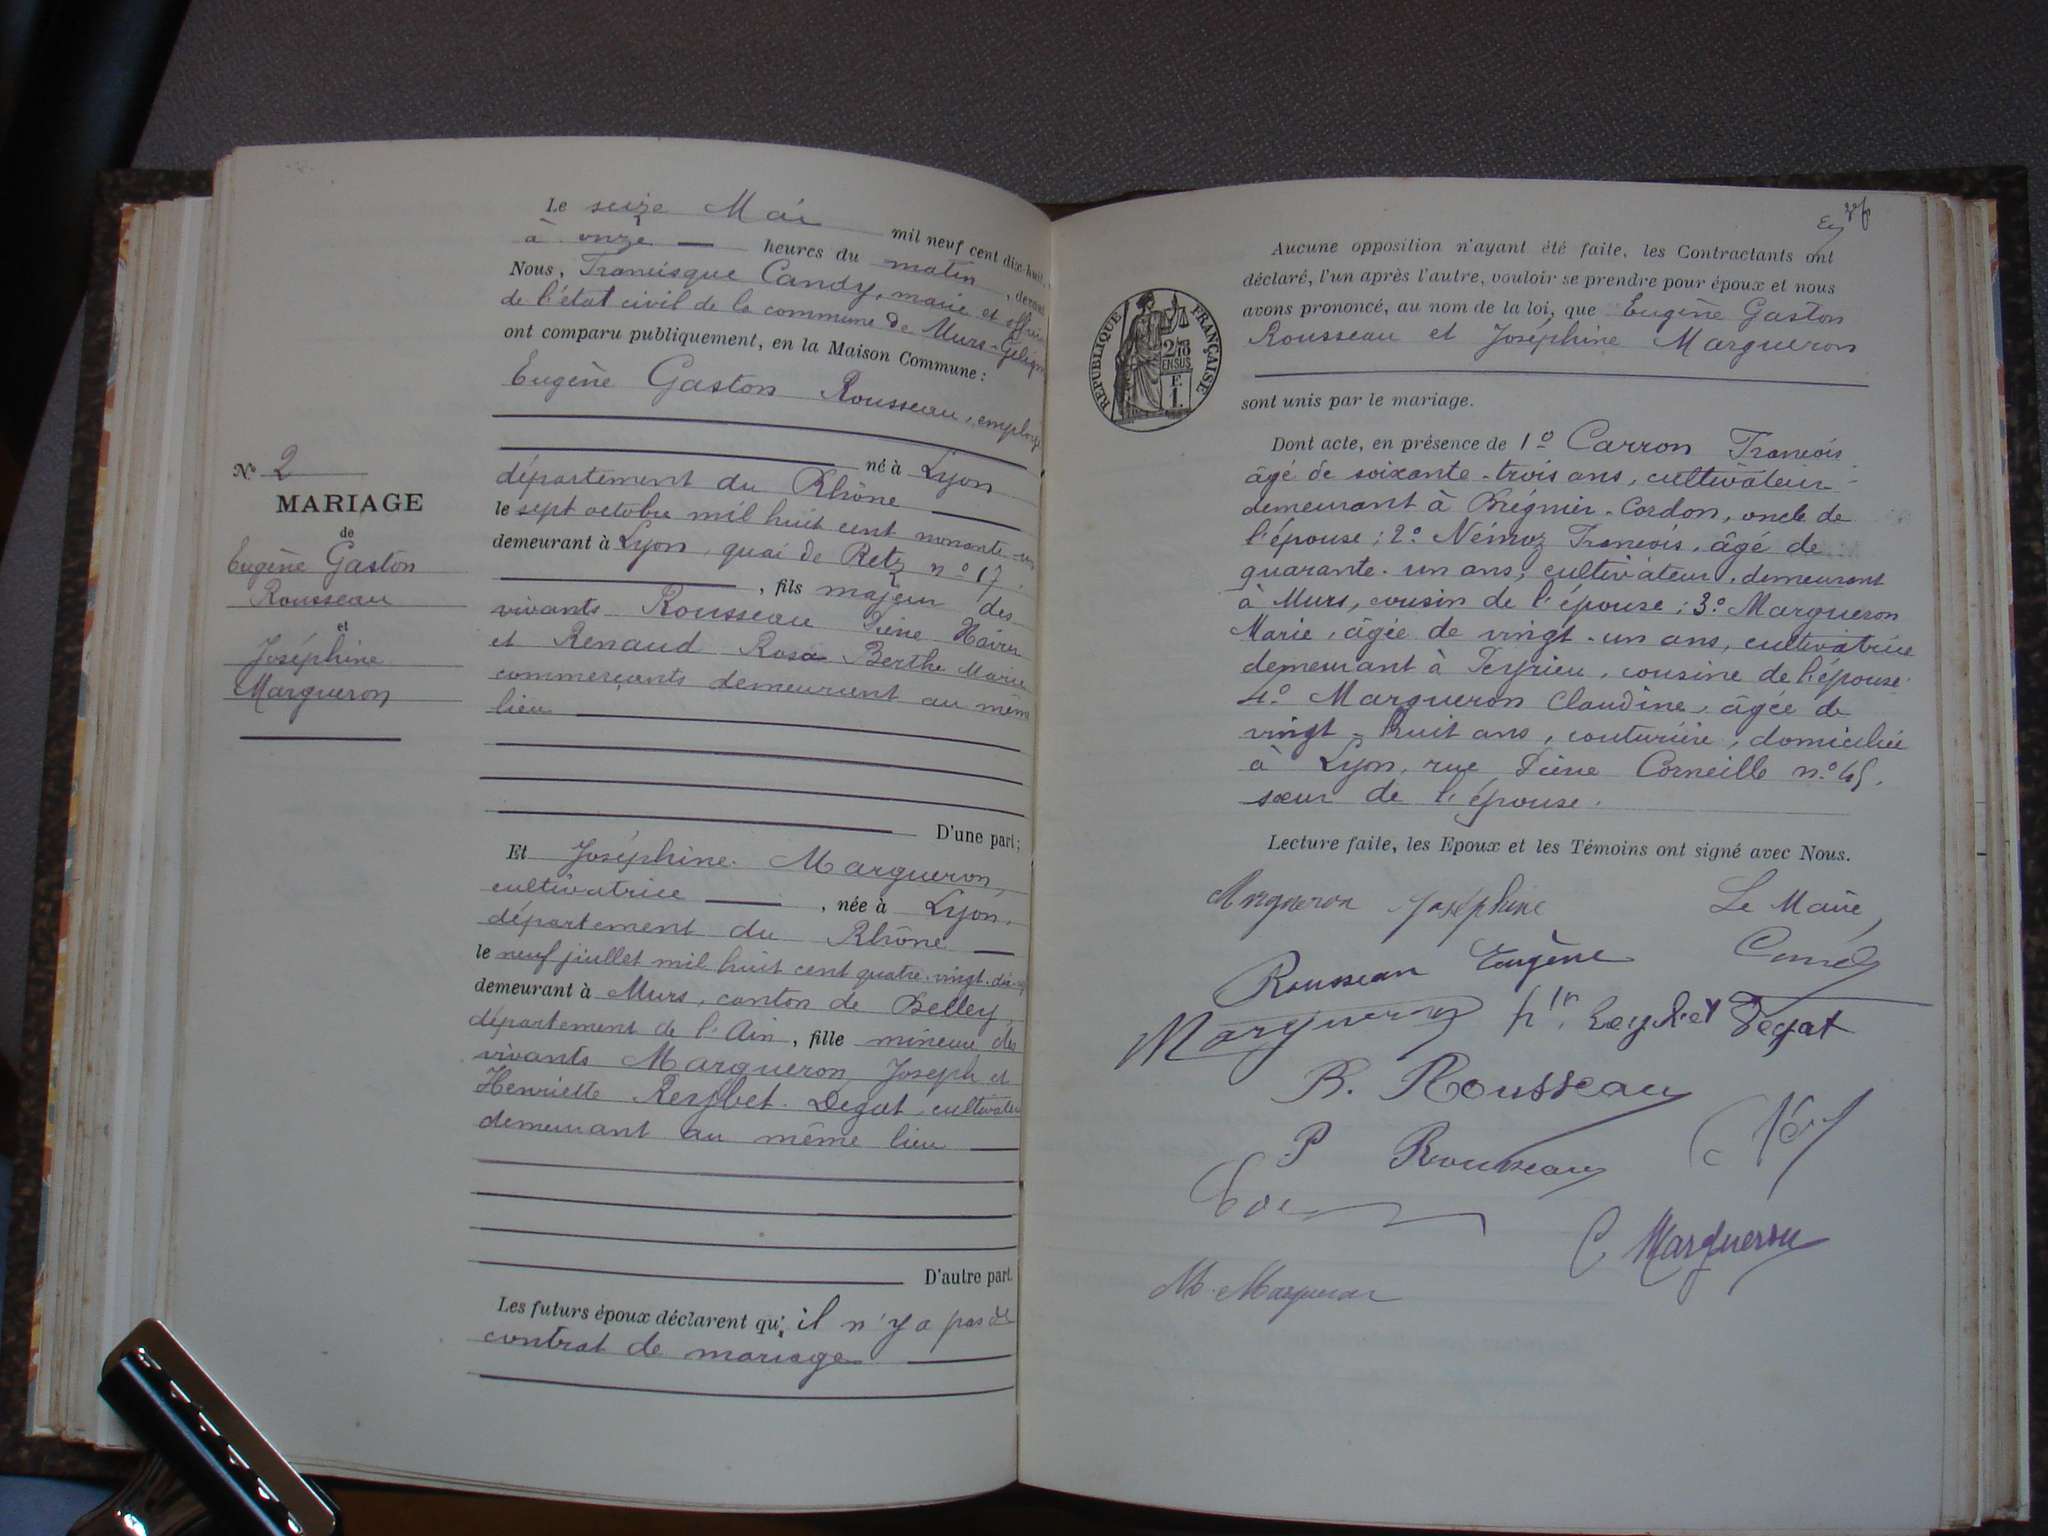 Le seize Mai mil neuf cent dix-huit,
à onze heures du matin, devant
Nous, Francisque Candy, maire et officier
de l'état civil de la commune de Murs-Gélignieux
ont comparu publiquement, en la Maison Commune :
Eugène Gaston Rousseau, employé
né à Lyon
département du Rhône
le sept octobre mil huit cent nonante-un
demeurant à Lyon, quai de Retz n° 17,
, fils majeur des
vivants Rousseau Pierre
et Renaud Rosa Berthe Marie
commerçants demeurant au même
lieu
D'une part ;
N° 2
MARIAGE
de
Eugène Gaston
Rousseau
et
Joséphine
Margueron
Et Joséphine Margueron,
cultivatrice , née à Lyon,
département du Rhône
le neuf juillet mil huit cent quatre-vingt-dix-
demeurant à Murs, canton de Belley,
département de l'Ain, fille mineure des
vivants Margueron Joseph et
Henriette Degat cultivateurs
demeurant au même lieu
D'autre part.
Les futurs époux déclarent qu'il n'y a pas de
contrat de mariage.
Aucune opposition n'ayant été faite, les Contractants ont
déclaré, l'un après l'autre, vouloir se prendre pour époux et nous
avons prononcé, au nom de la loi, que Eugène Gaston
Rousseau et Joséphine Margueron
sont unis par le mariage.
RÉPUBLIQUE FRANÇAISE
Dont acte, en présence de 1° Carron François
âgé de soixante-trois ans, cultivateur
demeurant à Brégnier-Cordon, oncle de
l'épouse ; 2° Némoz François, âgé de
quarante-un ans, cultivateur, demeurant
à Murs, cousin de l'épouse ; 3° Margueron
Marie, âgée de vingt-un ans, cultivatrice
demeurant à Peyrieu, cousine de l'épouse
4° Margueron Claudine, âgée de
vingt-huit ans, couturière, domiciliée
à Lyon, rue Pierre Corneille n° 45,
sœur de l'épouse.
Lecture faite, les Epoux et les Témoins ont signé avec Nous.
Margueron Joséphine Le Maire,
Rousseau Eugène Candy
Margueron Degat
B. Rousseau
P Rousseau
C Margueron
M. Margueron